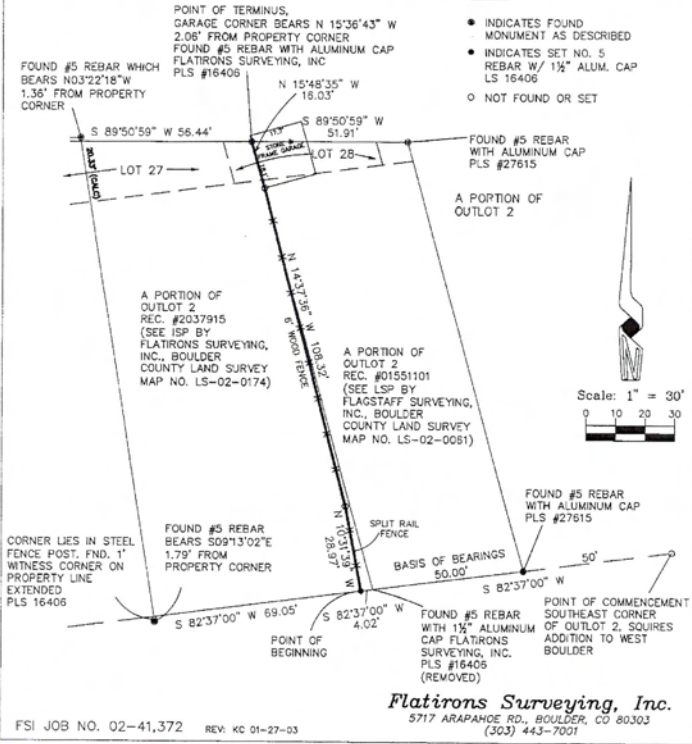 POINT OF TERMINUS,
GARAGE CORNER BEARS N 15°36'43" W
2.06' FROM PROPERTY CORNER
FOUND #5 REBAR WITH ALUMINUM CAP
FLATIRONS SURVEYING, INC
PLS #16406
INDICATES FOUND
MONUMENT AS DESCRIBED
INDICATES SET NO. 5
REBAR W/ 1½" ALUM. CAP
LS 16406
NOT FOUND OR SET
FOUND #5 REBAR WHICH
BEARS N03°22'18"W
1.36' FROM PROPERTY
CORNER
N 15°48'35" W
16.03'
S 89°50'59" W 56.44'
S 89°50'59" W
51.91'
FOUND #5 REBAR
WITH ALUMINUM CAP
PLS #27615
STONE &
FRAME GARAGE
LOT 27
LOT 28
20.33' (CALC)
A PORTION OF
OUTLOT 2
A PORTION OF
OUTLOT 2
REC. #2037915
(SEE ISP BY
FLATIRONS SURVEYING,
INC., BOULDER
COUNTY LAND SURVEY
MAP NO. LS-02-0174)
N 14°37'36" W 108.32'
6' WOOD FENCE
A PORTION OF
OUTLOT 2
REC. #01551101
(SEE LSP BY
FLAGSTAFF SURVEYING,
INC., BOULDER
COUNTY LAND SURVEY
MAP NO. LS-02-0061)
Scale: 1" = 30'
0 10 20 30
FOUND #5 REBAR
WITH ALUMINUM CAP
PLS #27615
CORNER LIES IN STEEL
FENCE POST. FND. 1'
WITNESS CORNER ON
PROPERTY LINE
EXTENDED
PLS 16406
FOUND #5 REBAR
BEARS S09°13'02"E
1.79' FROM
PROPERTY CORNER
N 10°31'39" W
28.97'
SPLIT RAIL
FENCE
BASIS OF BEARINGS
50.00'
S 82°37'00" W
50'
S 82°37'00" W 69.05'
S 82°37'00" W
4.02'
POINT OF
BEGINNING
FOUND #5 REBAR
WITH 1½" ALUMINUM
CAP FLATIRONS
SURVEYING, INC.
PLS #16406
(REMOVED)
POINT OF COMMENCEMENT
SOUTHEAST CORNER
OF OUTLOT 2, SQUIRES
ADDITION TO WEST
BOULDER
Flatirons Surveying, Inc.
5717 ARAPAHOE RD., BOULDER, CO 80303
(303) 443-7001
FSI JOB NO. 02-41,372 REV: KC 01-27-03